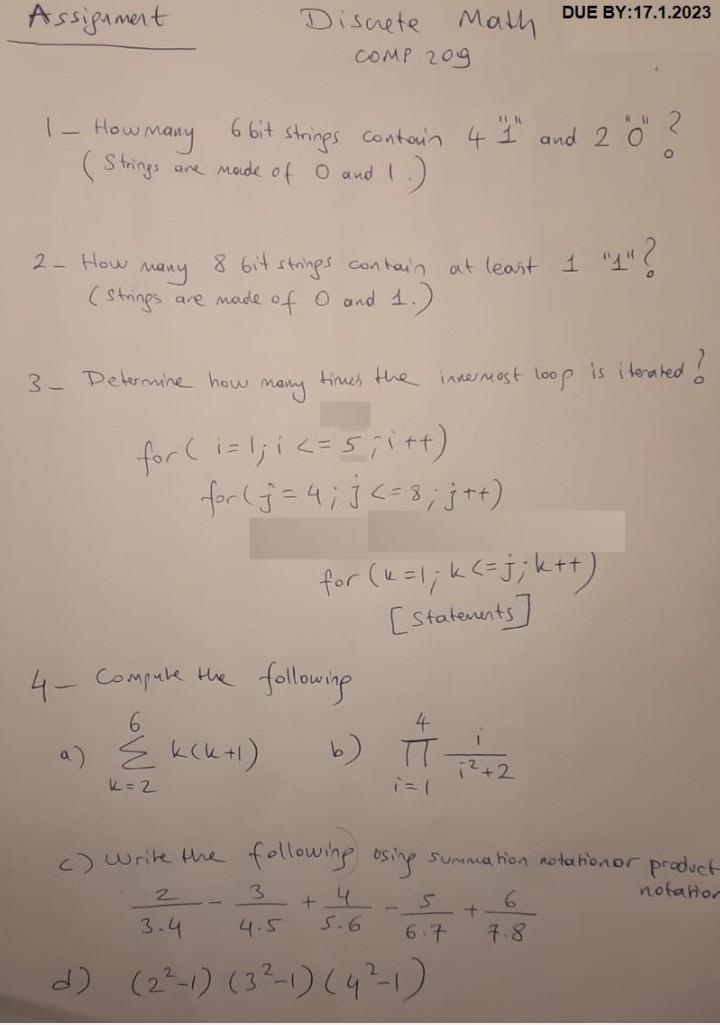 Assignment Discrete Math DUE BY:17.1.2023
COMP 209
1- How many 6 bit strings contain 4 "1" and 2 "0"?
(Strings are made of 0 and 1.)
2- How many 8 bit strings contain at least 1 "1"?
(Strings are made of 0 and 1.)
3- Determine how many times the innermost loop is iterated?
for( i=1; i <= 5; i++)
for(j=4; j<=8; j++)
for(k=1; k<=j; k++)
[Statements]
4- Compute the following
a) ∑_{k=2}^{6} k(k+1) b) ∏_{i=1}^{4} i/(i²+2)
c) Write the following using summation notation or product
notation
2/3.4 - 3/4.5 + 4/5.6 - 5/6.7 + 6/7.8
d) (2²-1) (3²-1) (4²-1)